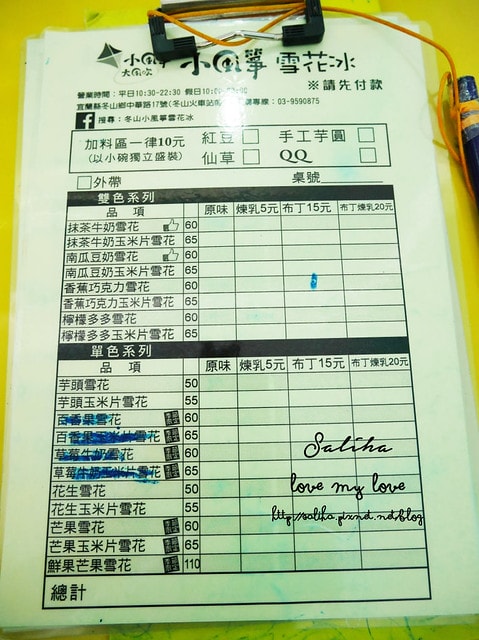 小風箏
大風吹
小風箏 雪花冰
※請先付款
營業時間：平日10:30-22:30 假日10:00-
宜蘭縣冬山鄉中華路17號(冬山火車站 專線：03-9590875
f 搜尋：冬山小風箏雪花冰
加料區一律10元 紅豆 手工芋圓
(以小碗獨立盛裝) 仙草 QQ
外帶 桌號
雙色系列
品 項 原味 煉乳5元 布丁15元 布丁煉乳20元
抹茶牛奶雪花 60
抹茶牛奶玉米片雪花 65
南瓜豆奶雪花 60
南瓜豆奶玉米片雪花 65
香蕉巧克力雪花 60
香蕉巧克力玉米片雪花 65
檸檬多多雪花 60
檸檬多多玉米片雪花 65
單色系列
品 項 原味 煉乳5元 布丁15元 布丁煉乳20元
芋頭雪花 50
芋頭玉米片雪花 55
百香果雪花 60
百香果玉米片雪花 65
草莓牛奶雪花 60
草莓牛奶玉米片雪花 65
花生雪花 50
花生玉米片雪花 55
芒果雪花 60
芒果玉米片雪花 65
鮮果芒果雪花 110
總計
Saliha
love my love
http://saliha.pixnet.net/blog